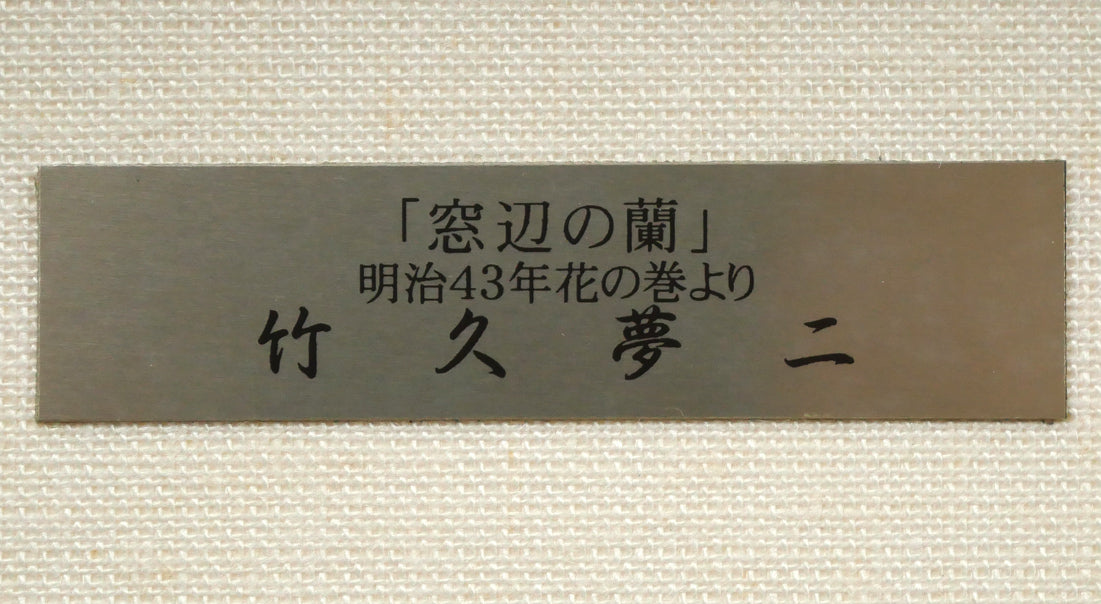 「窓辺の蘭」
明治43年花の巻より
竹久夢二